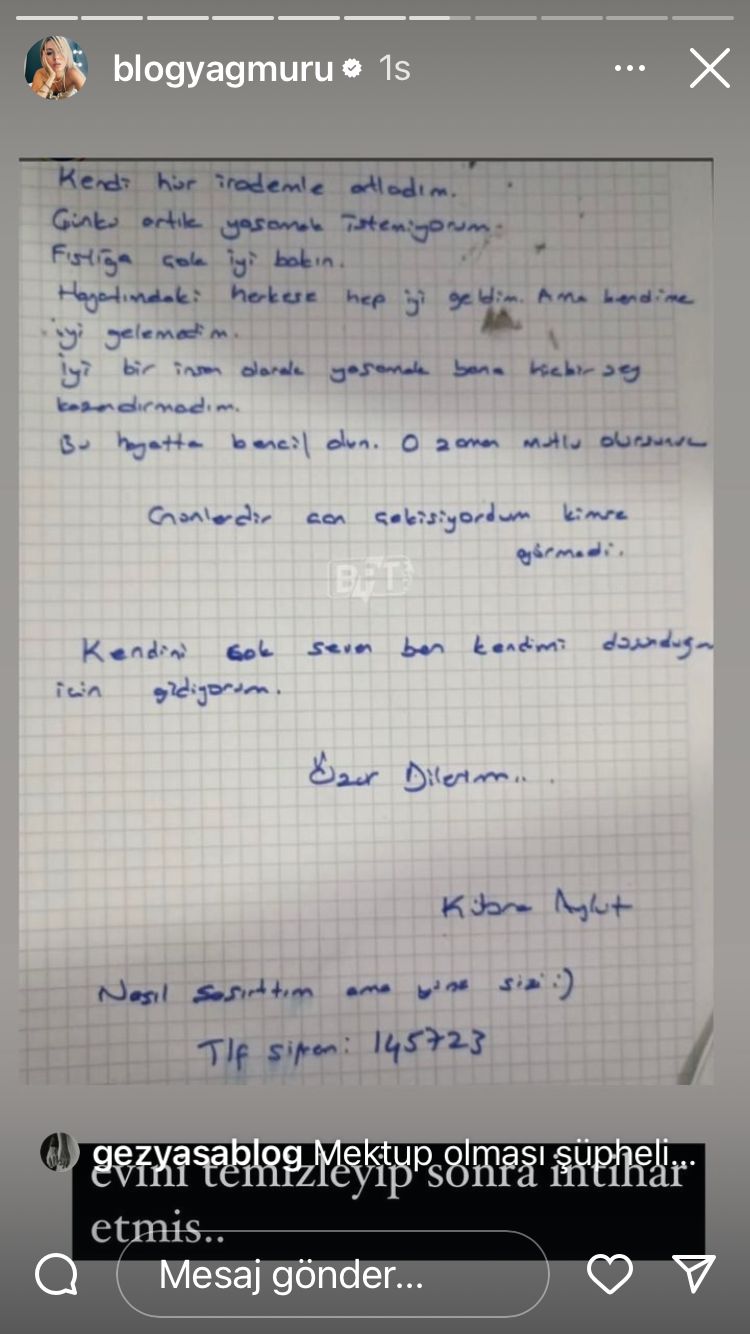 blogyagmuru 1s
Kendi hür irademle atladım.
Çünkü artık yaşamak istemiyorum.
Fıstığa çok iyi bakın.
Hayatımdaki herkese hep iyi geldim. Ama kendime
iyi gelemedim.
İyi bir insan olarak yaşamak bana hiçbir şey
kazandırmadım.
Bu hayatta bencil olun. O zaman mutlu olursunuz
Günlerdir can çekişiyordum kimse
görmedi.
BPT
Kendini çok seven ben kendimi düşündüğüm
için gidiyorum.
Özür Dilerim...
Kübra Aykut
Nasıl şaşırttım ama yine sizi :)
Tlf şifrem: 145723
gezyasablog Mektup olması şüpheli...
evini temizleyip sonra intihar
etmis..
Mesaj gönder...